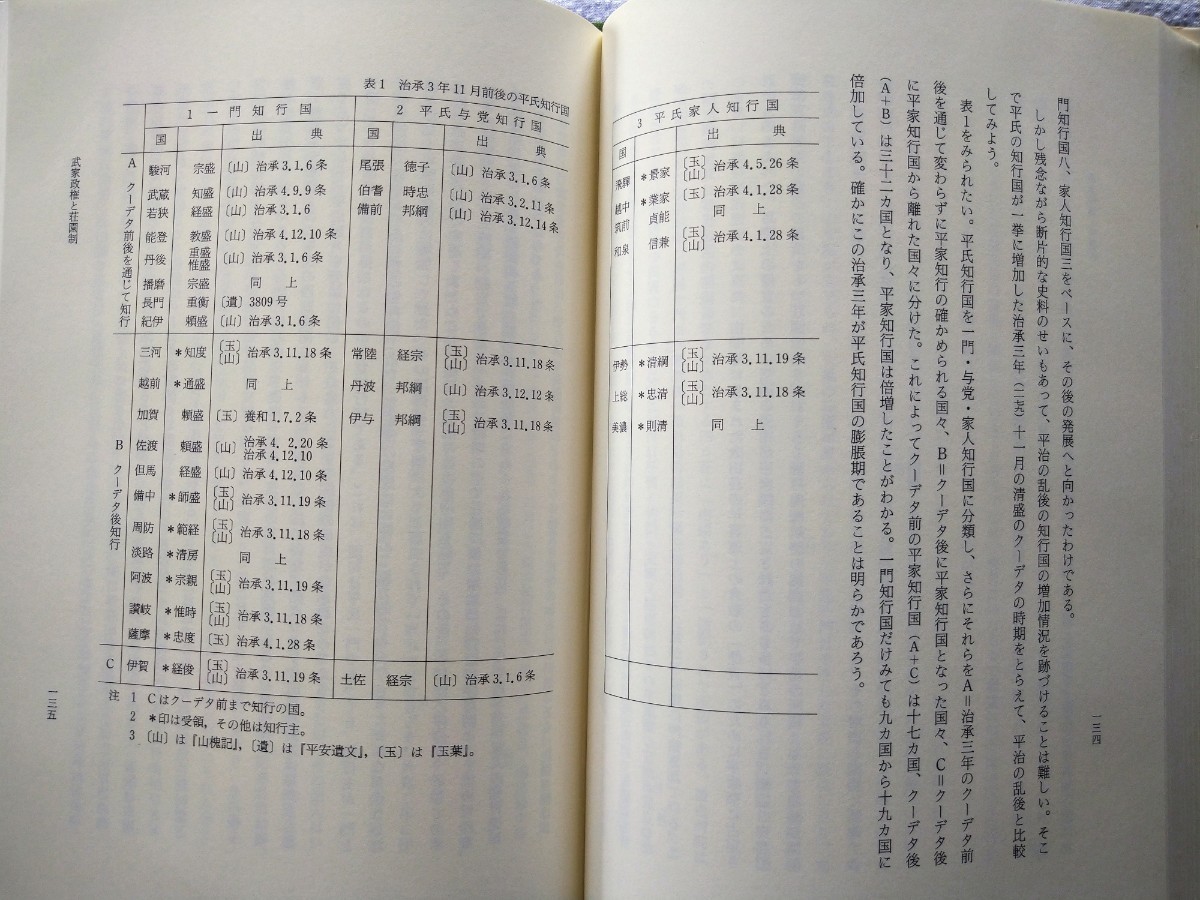 門知行国八、家人知行国三をベースに、その後の発展へと向かったわけである。
しかし残念ながら断片的な史料のせいもあって、平治の乱後の知行国の増加情況を跡づけることは難しい。そこ
で平氏の知行国が一挙に増加した治承三年(一一七九)十一月の清盛のクーデタの時期をとらえて、平治の乱後と比較
してみよう。
表1をみられたい。平氏知行国を一門・与党・家人知行国に分類し、さらにそれらをA=治承三年のクーデタ前
後を通じて変わらずに平家知行の確かめられる国々、B=クーデタ後に平家知行国となった国々、C=クーデタ後
に平家知行国から離れた国々に分けた。これによってクーデタ前の平家知行国(A+C)は十七カ国、クーデタ後
(A+B)は三十二カ国となり、平家知行国は倍増したことがわかる。一門知行国だけみても九カ国から十九カ国に
倍加している。確かにこの治承三年が平氏知行国の膨脹期であることは明らかであろう。
一三四
3 平氏家人知行国
国 出典
飛驒 *景家 〔玉〕〔山〕 治承4.5.26条
越中 *業家 〔玉〕 治承4.1.28条
筑前 貞能 同上
和泉 信兼 〔玉〕〔山〕 治承4.1.28条
伊勢 *清綱 〔玉〕〔山〕 治承3.11.19条
上総 *忠清 〔玉〕〔山〕 治承3.11.18条
美濃 *則清 同上
表1 治承3年11月前後の平氏知行国
1 一門知行国 2 平氏与党知行国
国 出典 国 出典
A クーデタ前後を通じて知行
駿河 宗盛 〔山〕治承3.1.6条 尾張 徳子 〔山〕治承3.1.6条
武蔵 知盛 〔山〕治承4.9.9条 伯耆 時忠 〔山〕治承3.2.11条
若狭 経盛 〔山〕治承3.1.6 備前 邦綱 〔山〕治承3.12.14条
能登 教盛 〔山〕治承4.12.10条
丹後 重盛 惟盛 〔山〕治承3.1.6条
播磨 宗盛 同上
長門 重衡 〔遺〕3809号
紀伊 頼盛 〔山〕治承3.1.6条
B クーデタ後知行
三河 *知度 〔玉〕〔山〕 治承3.11.18条 常陸 経宗 〔玉〕〔山〕 治承3.11.18条
越前 *通盛 同上 丹波 邦綱 〔山〕治承3.12.12条
加賀 頼盛 〔玉〕養和1.7.2条 伊与 邦綱 〔玉〕〔山〕 治承3.11.18条
佐渡 頼盛 〔山〕 治承4.2.20条 治承4.12.10
但馬 経盛 〔山〕治承4.12.10条
備中 *師盛 〔玉〕〔山〕 治承3.11.19条
周防 *範経 〔玉〕〔山〕 治承3.11.18条
淡路 *清房 同上
阿波 *宗親 〔玉〕〔山〕 治承3.11.19条
讃岐 *惟時 〔玉〕〔山〕 治承3.11.18条
薩摩 *忠度 〔玉〕治承4.1.28条
C 伊賀 *経俊 〔玉〕〔山〕 治承3.11.19条 土佐 経宗 〔山〕治承3.1.6条
注 1 Cはクーデタ前まで知行の国。
2 *印は受領,その他は知行主。
3 〔山〕は『山槐記』,〔遺〕は『平安遺文』,〔玉〕は『玉葉』。
武家政権と荘園制
一三五